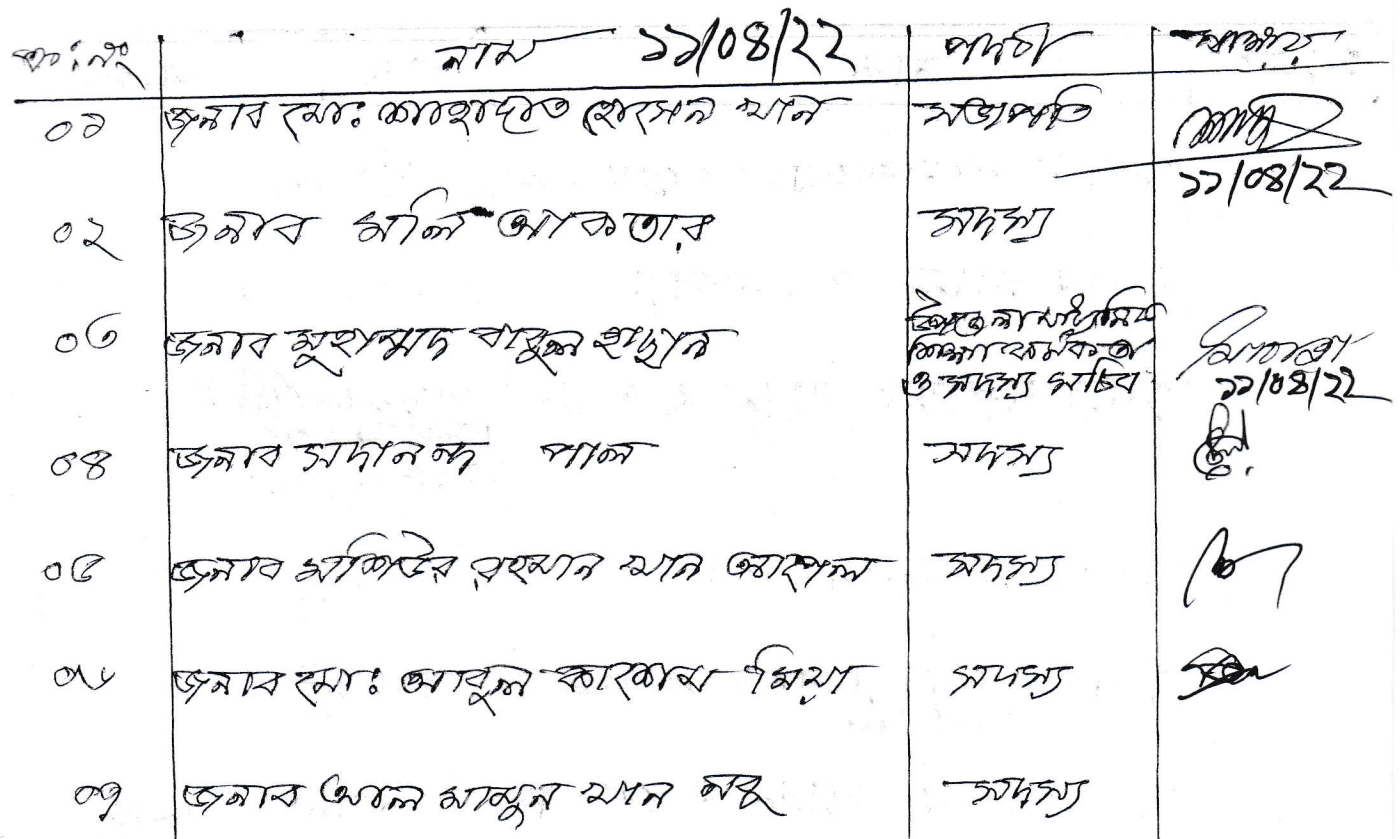 ক্রঃনং নাম ১১/০৪/২২ পদবী স্বাক্ষর
০১ জনাব মোঃ শাহাদাত হোসেন খান সভাপতি
১১/০৪/২২
০২ জনাব মলি আকতার সদস্য
০৩ জনাব মুহাম্মদ বাবুল হাছান উপজেলা মাধ্যমিক
শিক্ষা কর্মকর্তা
ও সদস্য সচিব ১১/০৪/২২
০৪ জনাব সদানন্দ পাল সদস্য
০৫ জনাব মশিউর রহমান খান সদস্য
০৬ জনাব মোঃ আবুল কাশেম মিয়া সদস্য
০৭ জনাব আল মামুন খান সদস্য